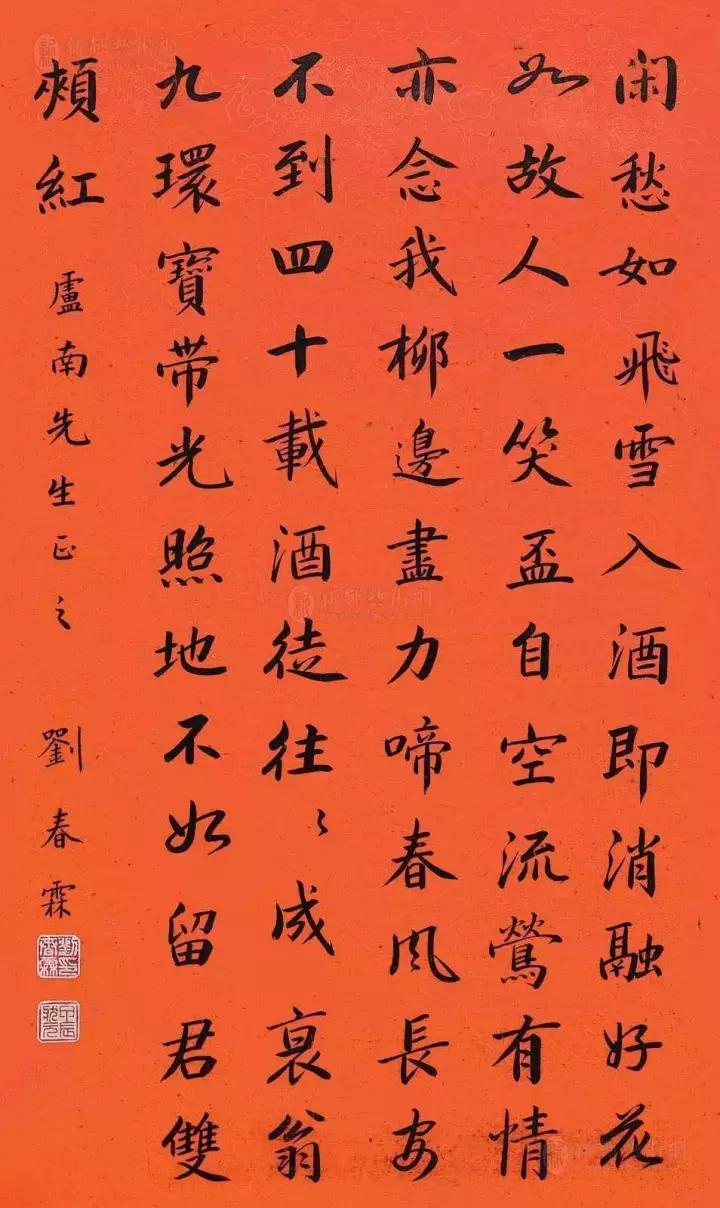 闲愁如飛雪入酒即消融好花
如故人一笑盃自空流鶯有情
亦念我柳邊盡力啼春风長安
不到四十載酒徒往〻成衰翁
九環寶带光照地不如留君雙
頰紅
盧南先生正之
劉春霖